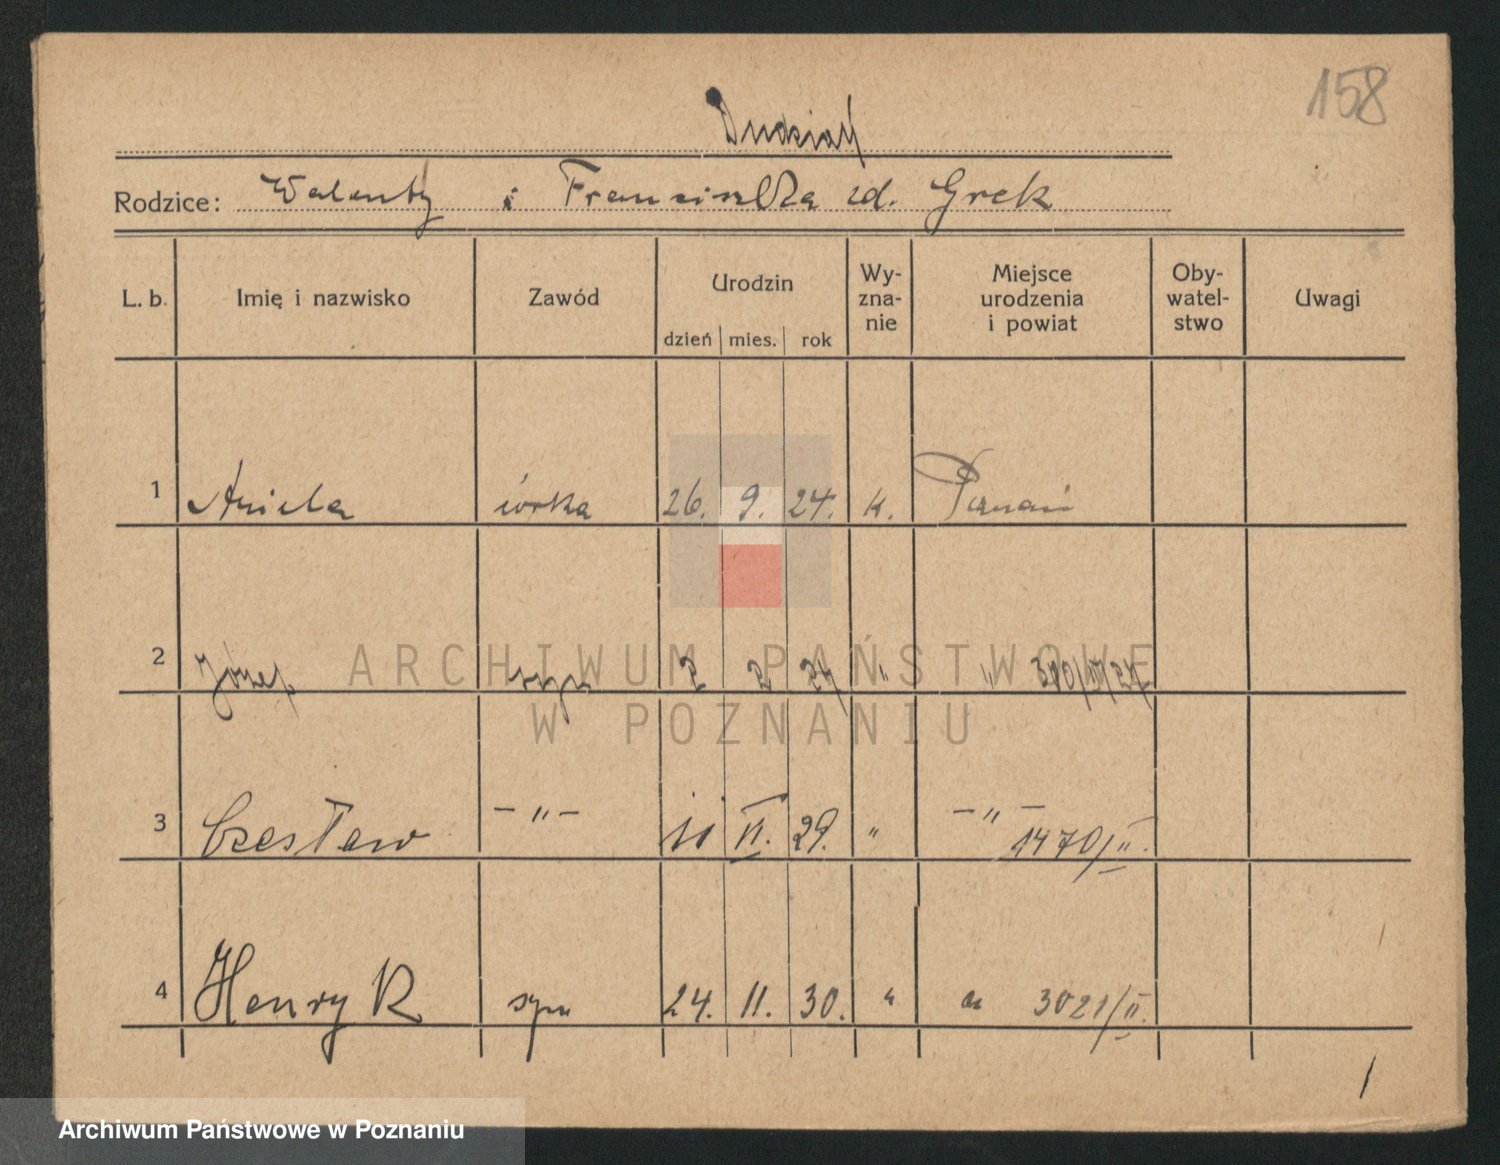 158
Dudziak
Rodzice: Walenty i Franciszka zd. Grek
L. b. Imię i nazwisko Zawód Urodzin dzień mies. rok Wy-zna-nie Miejsce urodzenia i powiat Oby-watel-stwo Uwagi
1 Aniela córka 26. 9. 24. k. Poznań
2 Józef syn 2 2 27 " "
3 Czesław — " — 11 VI. 29. " — " — 1470/II.
4 Henryk syn 24. 11. 30. " " 3021/II.
ARCHIWUM PAŃSTWOWE
W POZNANIU
Archiwum Państwowe w Poznaniu